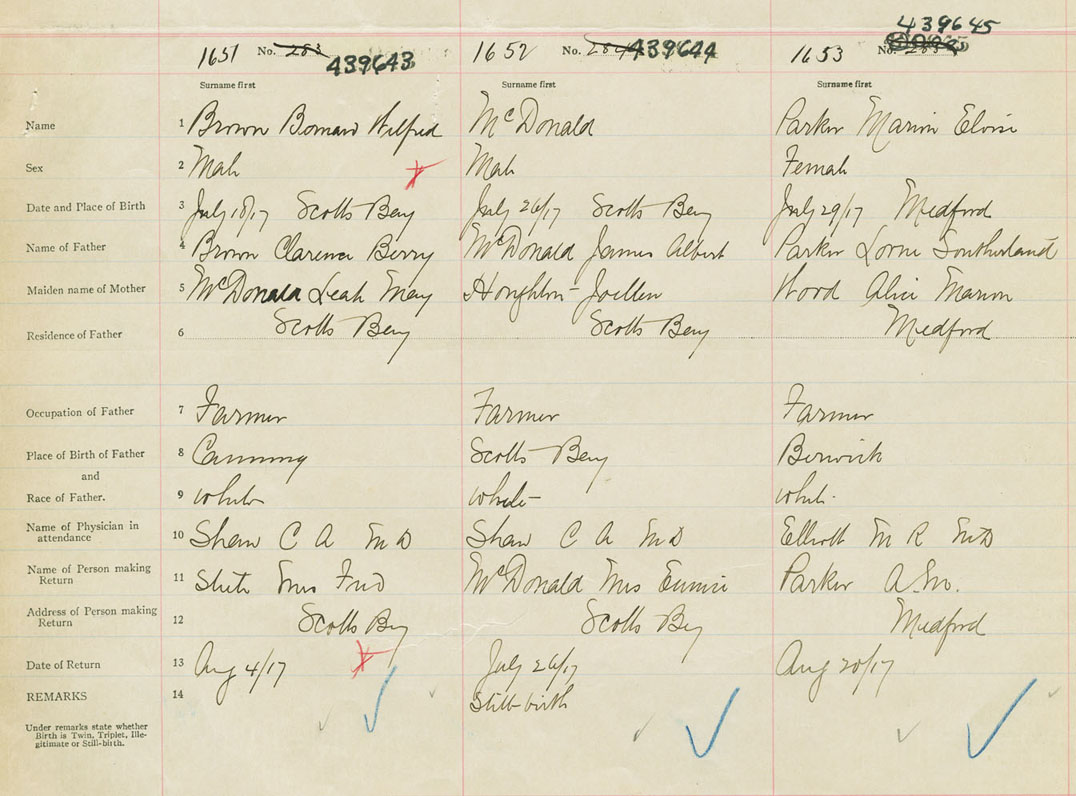 439645
1651 No. 283 439643 1652 No. 284 439644 1653 No.
Surname first Surname first Surname first
Name 1 Brown Bernard Wilfred McDonald Parker Marion Eloise
Sex 2 Male Male Female
Date and Place of Birth 3 July 18/17 Scotts Bay July 26/17 Scotts Bay July 29/17 Medford
Name of Father 4 Brown Clarence Berry McDonald James Albert Parker Lorne Southerland
Maiden name of Mother 5 McDonald Leah May Houghton Joellen Wood Alice Marion
Residence of Father 6 Scotts Bay Scotts Bay Medford
Occupation of Father 7 Farmer Farmer Farmer
Place of Birth of Father 8 Canning Scotts Bay Berwick
and
Race of Father. 9 white white white
Name of Physician in attendance 10 Shaw C A M D Shaw C A M D Elliott M R M D
Name of Person making Return 11 Mrs McDonald Mrs Eunice Parker A.M.
Address of Person making Return 12 Scotts Bay Scotts Bay Medford
Date of Return 13 Aug 4/17 July 26/17 Aug 20/17
REMARKS 14 Still-birth
Under remarks state whether
Birth is Twin, Triplet, Ille-
gitimate or Still-birth.